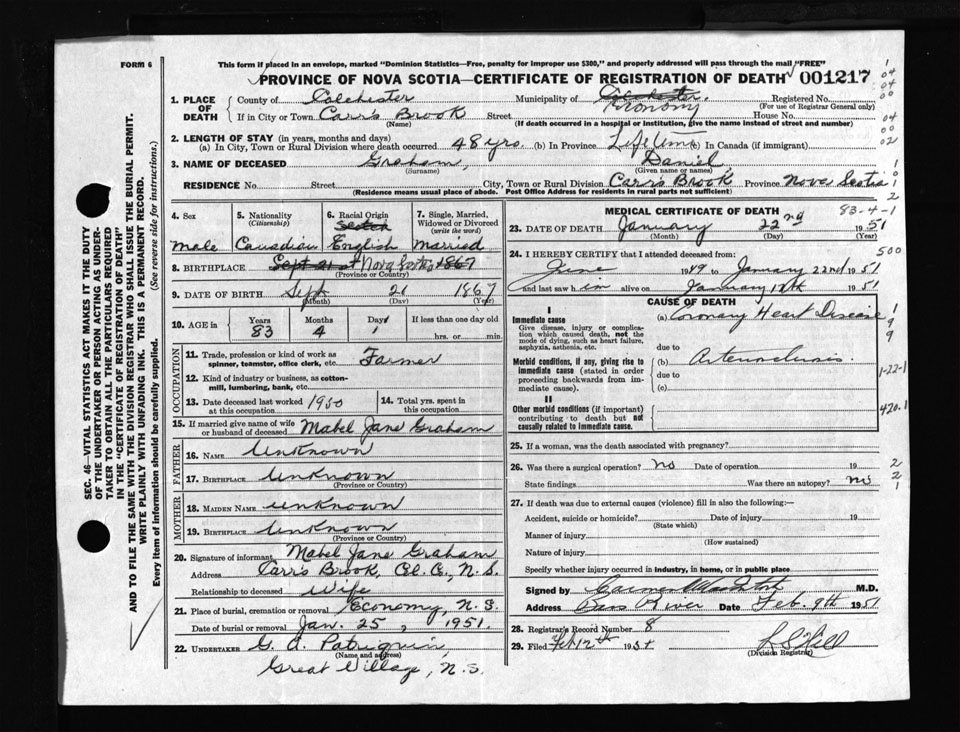 FORM 6
This form if placed in an envelope, marked "Dominion Statistics—Free, penalty for improper use $300," and properly addressed will pass through the mail "FREE"
PROVINCE OF NOVA SCOTIA—CERTIFICATE OF REGISTRATION OF DEATH 001217
1. PLACE OF DEATH
County of Colchester Municipality of Colchester. Economy Registered No.
(For use of Registrar General only)
If in City or Town Carrs Brook Street House No.
(Name) (If death occurred in a hospital or institution, give the name instead of street and number)
2. LENGTH OF STAY (in years, months and days)
(a) In City, Town or Rural Division where death occurred 48 yrs. (b) In Province Life time (c) In Canada (if immigrant)
3. NAME OF DECEASED Graham, Daniel
(Surname) (Given name or names)
RESIDENCE No. Street City, Town or Rural Division Carr's Brook Province Nova Scotia
(Residence means usual place of abode. Post Office Address for residents in rural parts not sufficient)
4. Sex Male
5. Nationality (Citizenship) Canadian
6. Racial Origin Scotch English
7. Single, Married, Widowed or Divorced (write the word) Married
8. BIRTHPLACE Sept 21st Nova Scotia 1867
(Province or Country)
9. DATE OF BIRTH Sept 21 1867
(Month) (Day) (Year)
10. AGE in Years Months Days If less than one day old
83 4 1 hrs. or min.
OCCUPATION
11. Trade, profession or kind of work as spinner, teamster, office clerk, etc. Farmer
12. Kind of industry or business, as cotton-mill, lumbering, bank, etc.
13. Date deceased last worked at this occupation 1950
14. Total yrs. spent in this occupation
15. If married give name of wife or husband of deceased Mabel Jane Graham
FATHER
16. NAME Unknown
17. BIRTHPLACE Unknown
(Province or Country)
MOTHER
18. MAIDEN NAME Unknown
19. BIRTHPLACE Unknown
(Province or Country)
20. Signature of informant Mabel Jane Graham
Address Carrs Brook, Col. Co., N.S.
Relationship to deceased Wife
21. Place of burial, cremation or removal Economy, N.S.
Date of burial or removal Jan. 25, 1951.
22. UNDERTAKER G. A. Patriquin,
(Name and address)
Great Village, N.S.
MEDICAL CERTIFICATE OF DEATH 83-4-1
23. DATE OF DEATH January 22nd 1951
(Month) (Day) (Year)
24. I HEREBY CERTIFY that I attended deceased from:
June 1949 to January 22nd 1951
and last saw him alive on January 1951
CAUSE OF DEATH
I
Immediate cause
Give disease, injury or complication which caused death, not the mode of dying, such as heart failure, asphyxia, asthenia, etc.
(a) Coronary Heart Disease
due to
Morbid conditions, if any, giving rise to immediate cause (stated in order proceeding backwards from immediate cause).
(b)
due to
(c)
II
Other morbid conditions (if important) contributing to death but not causally related to immediate cause.
25. If a woman, was the death associated with pregnancy?
26. Was there a surgical operation? No Date of operation 19
State findings Was there an autopsy? No
27. If death was due to external causes (violence) fill in also the following:—
Accident, suicide or homicide? Date of injury 19
(State which)
Manner of injury
(How sustained)
Nature of injury
Specify whether injury occurred in industry, in home, or in public place
Signed by M.D.
Address Bass River Date Feb. 9th 1951
28. Registrar's Record Number 8
29. Filed Feb 12th 1951
(Division Registrar)
500
1-22-1
420.1
SEC. 46—VITAL STATISTICS ACT MAKES IT THE DUTY
OF THE UNDERTAKER OR PERSON ACTING AS UNDER-
TAKER TO OBTAIN ALL THE PARTICULARS REQUIRED
IN THE "CERTIFICATE OF REGISTRATION OF DEATH"
AND TO FILE THE SAME WITH THE DIVISION REGISTRAR WHO SHALL ISSUE THE BURIAL PERMIT.
WRITE PLAINLY WITH UNFADING INK. THIS IS A PERMANENT RECORD.
Every item of information should be carefully supplied. (See reverse side for instructions.)